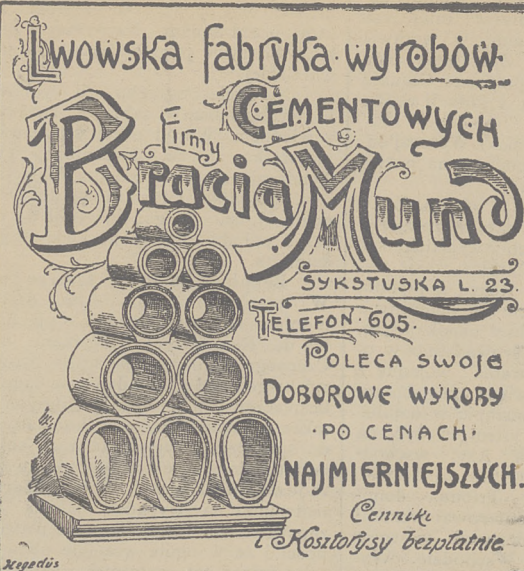 Lwowska fabryka wyrobów
Cementowych
Firmy
Bracia Mund
Sykstuska L. 23.
Telefon 605.
Poleca swoje
Doborowe wyroby
po cenach
najmierniejszych.
Cenniki
i Kosztorysy bezpłatnie
Hegedüs